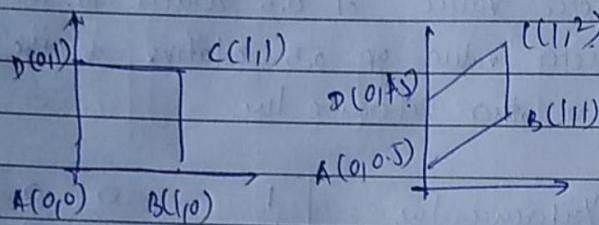 D(0,1)
C(1,1)
A(0,0)
B(1,0)
C(1,2)
B(1,1)
A(0,0.5)